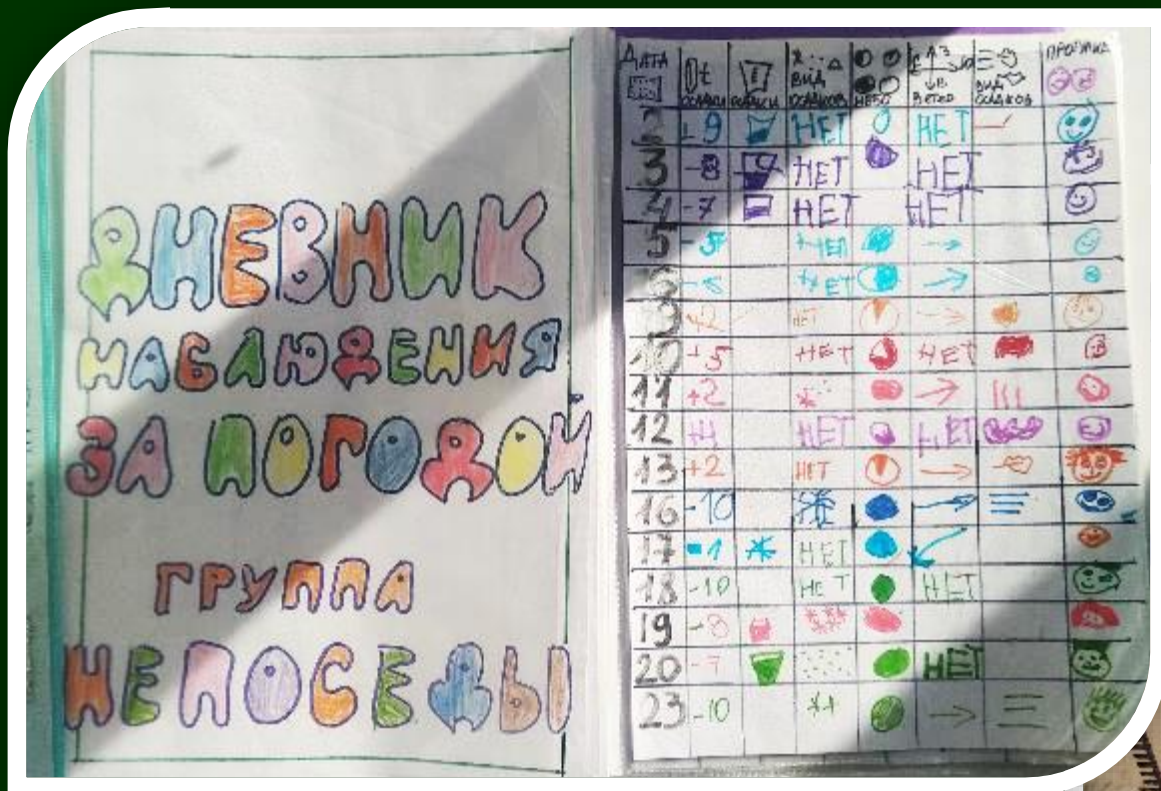 ДНЕВНИК
НАБЛЮДЕНИЯ
ЗА ПОГОДОЙ
ГРУППА
НЕПОСЕДЫ
ДАТА t ОСАДКИ ОСАДКИ ВИД ОСАДКОВ НЕБО С З Ю В ВЕТЕР ВИД ОСАДКОВ
2 -9 НЕТ НЕТ
3 -8 НЕТ НЕТ
4 -7 НЕТ НЕТ
5 -5 НЕТ
НЕТ
НЕТ
10 +5 НЕТ НЕТ
11 +2
12 НЕТ НЕТ
13 +2 НЕТ
16 -10
17 -1 НЕТ
18 -10 НЕТ НЕТ
19 -8
20 -7 НЕТ
23 -10